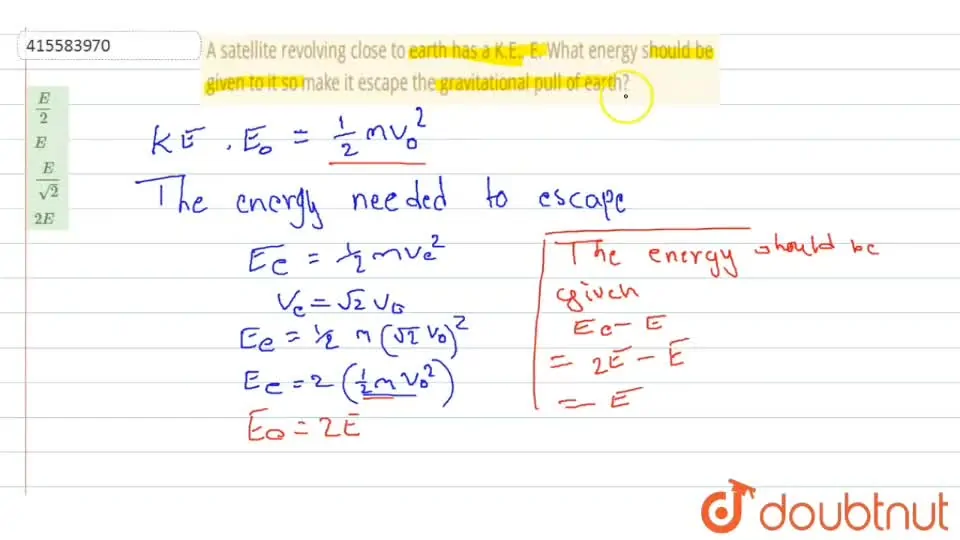 415583970
A satellite revolving close to earth has a K.E., E. What energy should be
given to it so make it escape the gravitational pull of earth?
E/2
E
E/√2
2E
KE . E₀ = 1/2 mv₀²
The energy needed to escape
Ee = 1/2 mve²
Ve = √2 V₀
Ee = 1/2 m(√2 V₀)²
Ee = 2(1/2 m V₀²)
E₀ = 2E
The energy should be
given
Ee - E
= 2E - E
= E
doubtnut